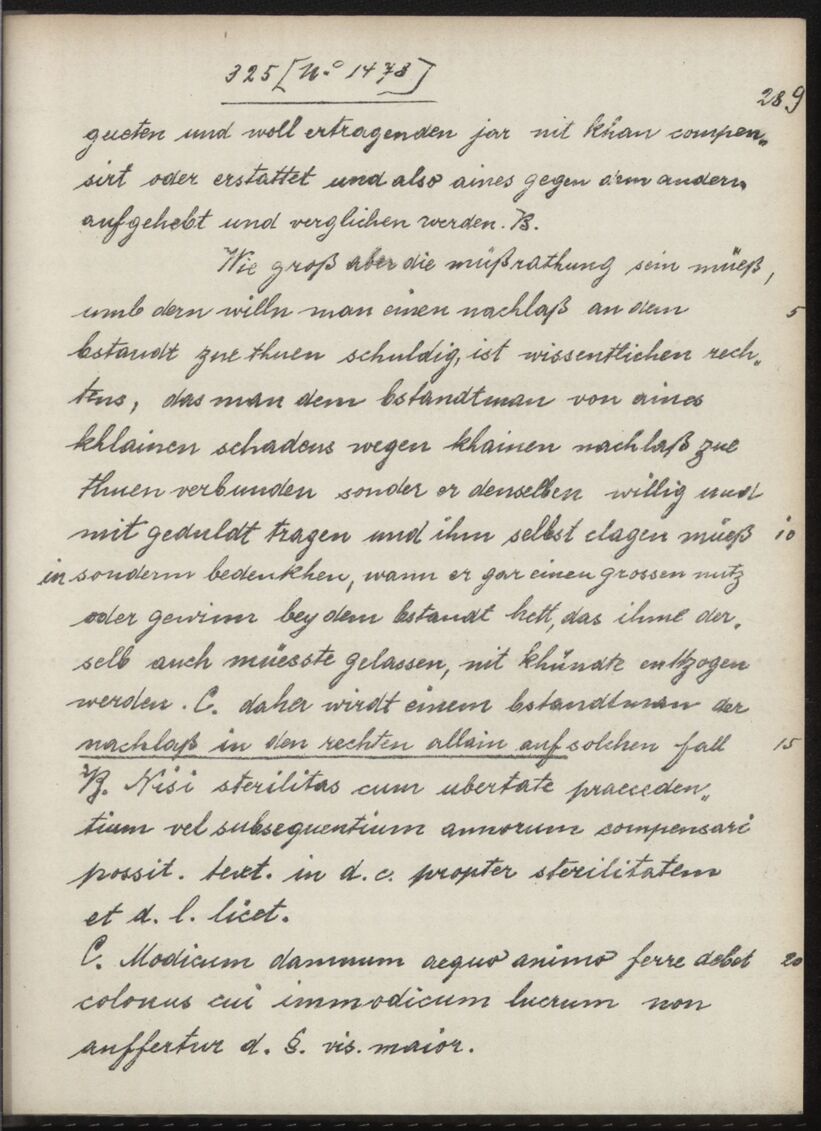 325 [N.o 1478]
289
gueten und woll ertragenden jar nit khan compen„
sirt oder erstattet und also aines gegen dem andern
aufgehebt und verglichen werden. B.
Wie groß aber die mißrathung sein müeß,
umb dern willn man einen nachlaß an dem 5
bstandt zue thuen schuldig, ist wissentlichen rech„
tens, das man dem bstandtman von aines
khlainen schadens wegen khainen nachlaß zue
thuen verbunden sonder er denselben willig und
mit geduldt tragen und ihm selbst clagen müeß 10
in sonderm bedenkhen, wann er gar einen grossen nutz
oder gewinn bey dem bstandt hett, das ihme der„
selb auch müesste gelassen, nit khündte entzogen
werden. C. daher wirdt einem bstandtman der
nachlaß in den rechten allain auf solchen fall 15
B. Nisi sterilitas cum ubertate praeceden„
tium vel subsequentium annorum compensari
possit. text. in d. c. propter sterilitatem
et d. l. licet.
C. Modicum damnum aequo animo ferre debet 20
colonus cui immodicum lucrum non
auffertur d. §. vis. maior.